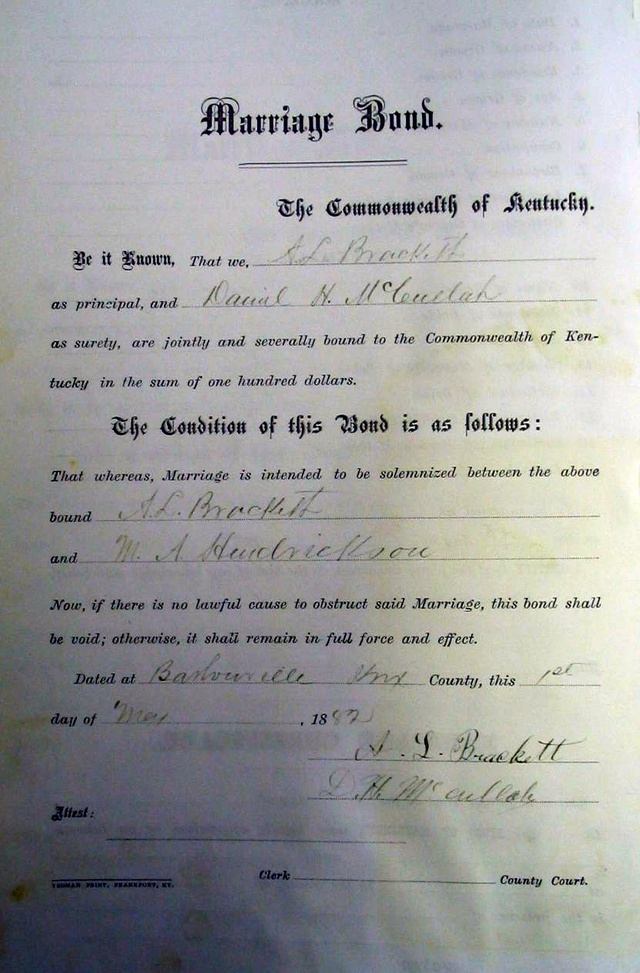 Marriage Bond.
The Commonwealth of Kentucky.
Be it Known, That we, A L Brackett
as principal, and Daniel H. McCullah
as surety, are jointly and severally bound to the Commonwealth of Ken-
tucky in the sum of one hundred dollars.
The Condition of this Bond is as follows:
That whereas, Marriage is intended to be solemnized between the above
bound A. L. Brackett
and M. A Hendrickson
Now, if there is no lawful cause to obstruct said Marriage, this bond shall
be void; otherwise, it shall remain in full force and effect.
Dated at Barbourville Knx County, this 1st
day of May, 1882
A. L. Brackett
D. H. McCullah
Attest:
Clerk County Court.
YEOMAN PRINT, FRANKFORT, KY.